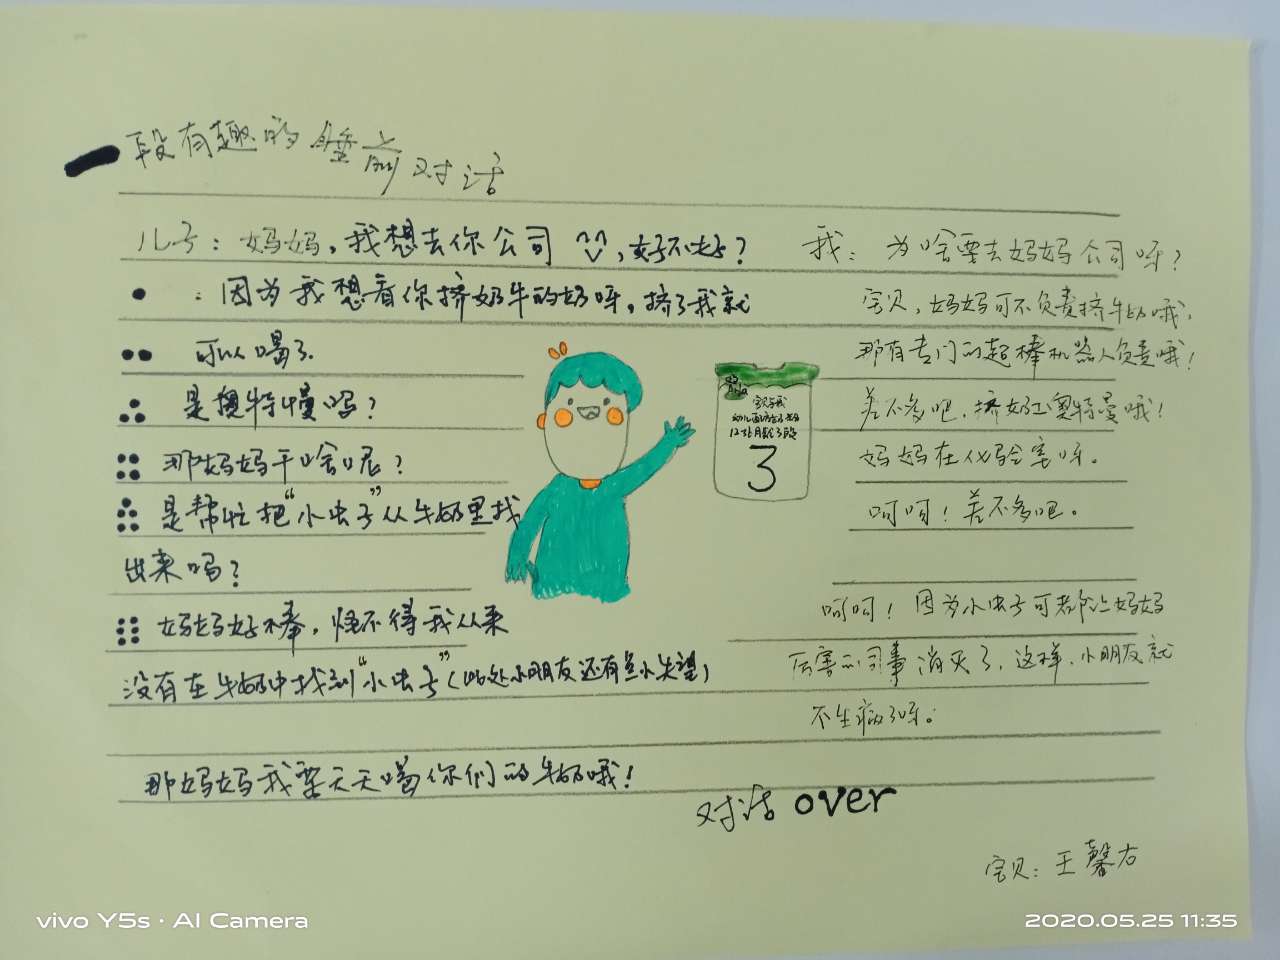 一段有趣的睡前对话
儿子：妈妈，我想去你公司，好不好？
我：为啥要去妈妈公司呀？
：因为我想看你挤奶牛的奶呀，挤了我就
可以喝了.
宝贝，妈妈可不负责挤牛奶哦，
那有专门的超棒机器人负责哦！
是奥特慢吗？
差不多吧，挤奶工奥特曼哦！
那妈妈干啥呢？
妈妈在化验室呀。
是帮忙把“小虫子”从牛奶里找
出来吗？
呵呵！差不多吧。
妈妈好棒，怪不得我从来
没有在牛奶中找到“小虫子”（此处小朋友还有点小失望）
呵呵！因为小虫子可都让妈妈
厉害的同事消灭了，这样，小朋友就
不生病了呀。
那妈妈我要天天喝你们的牛奶哦！
对话 over
宝贝：王馨右
3
vivo Y5s · AI Camera
2020.05.25 11:35